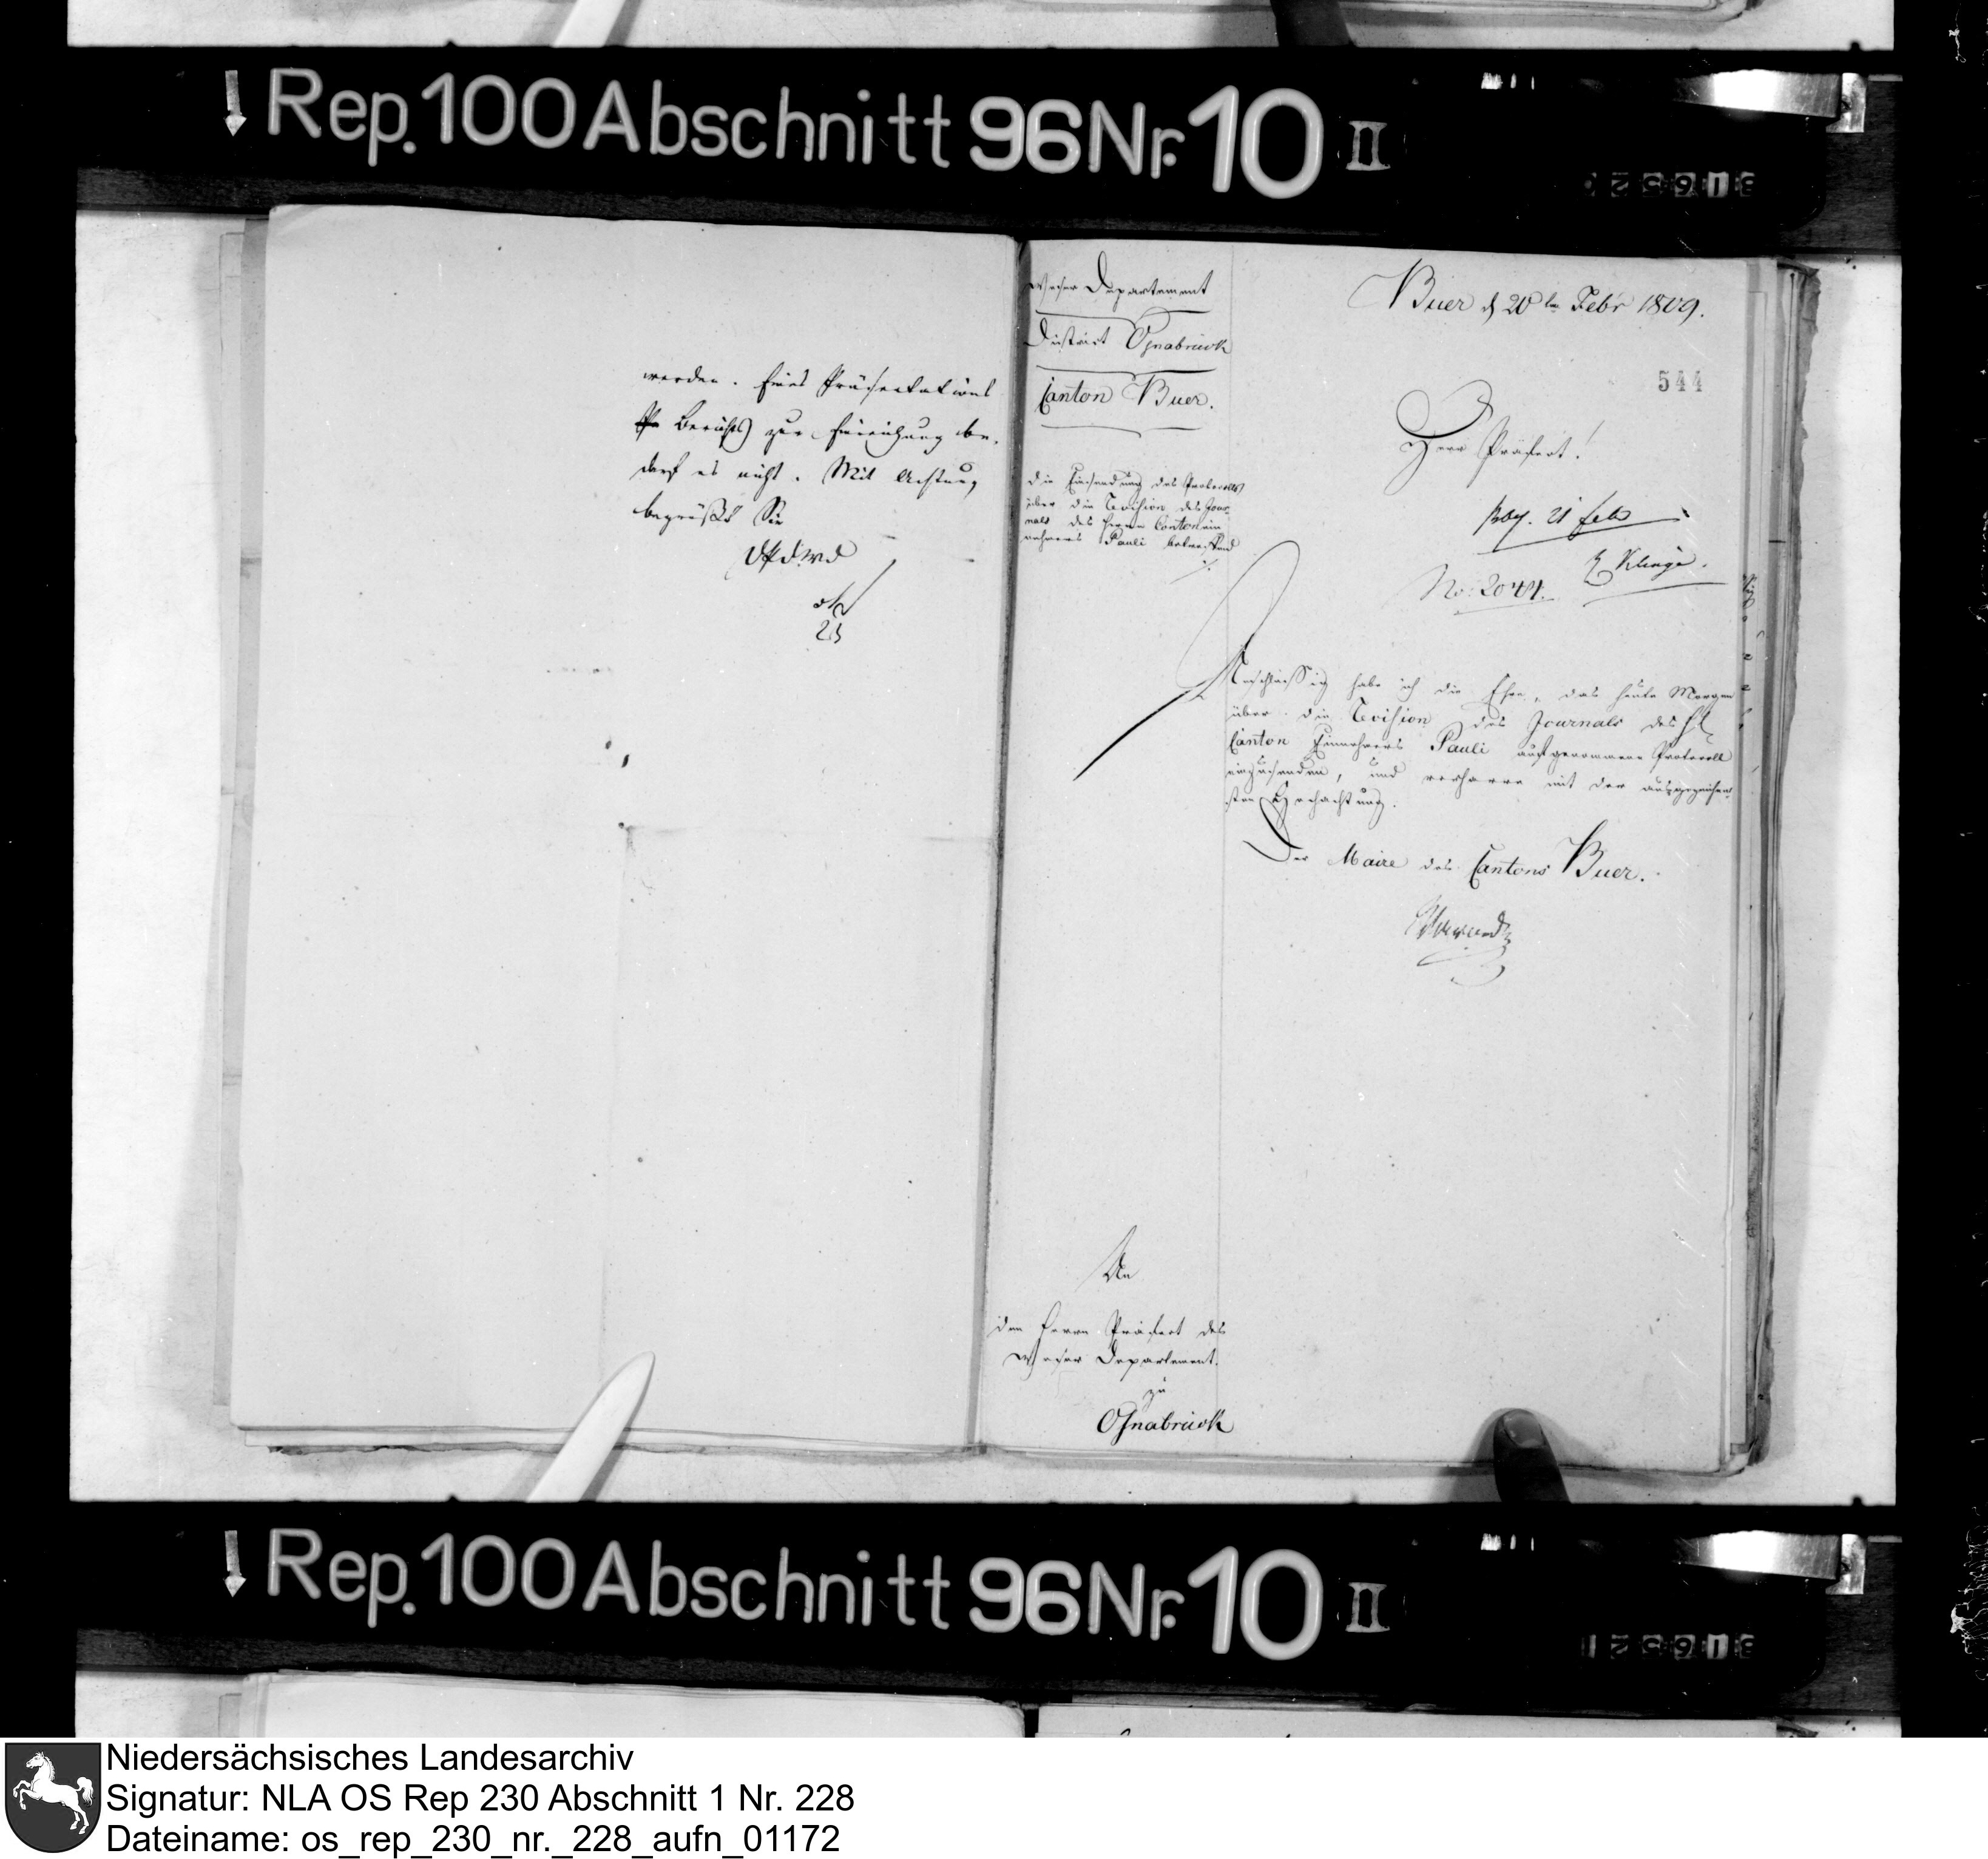 Rep. 100 Abschnitt 96 Nr. 10 II
werden. Eines Präsentations
Berichts zur Einreichung be-
darf es nicht. Mit Achtung
begrüßt Sie
Weser Departement
District Osnabrück
Canton Buer.
Die Einsendung des Protocolls
über die Revision des Jour-
nals des Herrn Cantonein-
nehmers Pauli betreffend
Buer d 20ten Febr 1809.
544
Herr Präfect!
21 Feb
Klinge.
No: 2044.
Anschliessig habe ich die Ehre, das heute Morgen
über die Revision des Journals des H
Canton Einnehmers Pauli aufgenommene Protocoll
einzusenden, und verharre mit der ausgezeichnet-
sten Hochachtung.
Der Maire des Cantons Buer.
An
den Herrn Präfect des
Weser Departement.
zu
Osnabrück
Rep. 100 Abschnitt 96 Nr. 10 II
Niedersächsisches Landesarchiv
Signatur: NLA OS Rep 230 Abschnitt 1 Nr. 228
Dateiname: os_rep_230_nr._228_aufn_01172